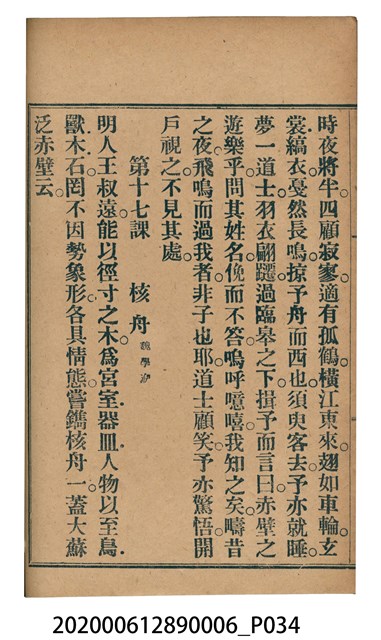 時夜將半。四顧寂寥。適有孤鶴。橫江東來。翅如車輪。玄
裳縞衣。戛然長鳴。掠予舟而西也。須臾客去。予亦就睡。
夢一道士。羽衣翩躚。過臨皋之下。揖予而言曰。赤壁之
遊樂乎。問其姓名。俛而不答。嗚呼噫嘻。我知之矣。疇昔
之夜。飛鳴而過我者。非子也耶。道士顧笑。予亦驚悟。開
戶視之。不見其處。
第十七課 核舟 魏學洢
明人王叔遠。能以徑寸之木。爲宮室器皿人物。以至鳥
獸木石。罔不因勢象形。各具情態。嘗鐫核舟一。蓋大蘇
泛赤壁云。
202000612890006_P034